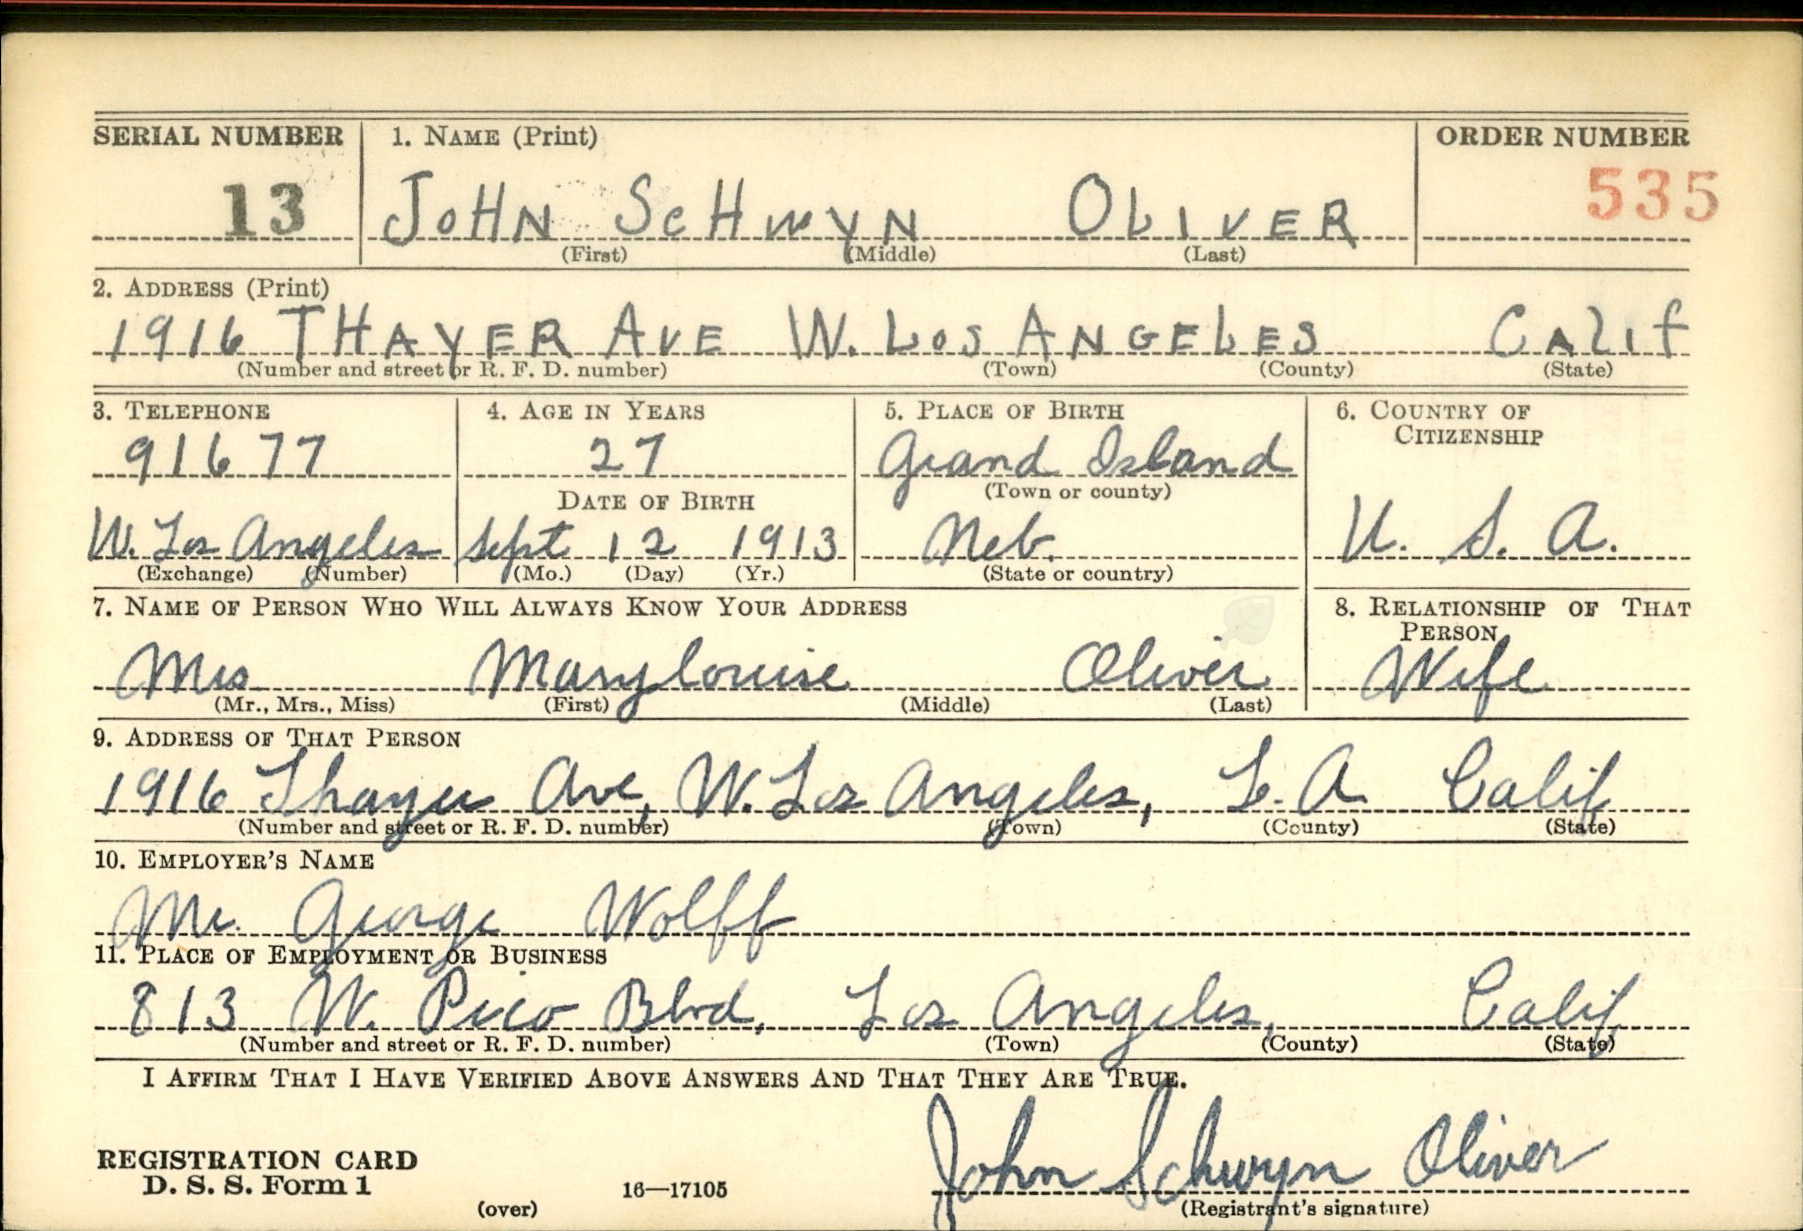 SERIAL NUMBER 1. NAME (Print) ORDER NUMBER
13 JOHN SCHWYN OLIVER 535
(First) (Middle) (Last)
2. ADDRESS (Print)
1916 THAYER AVE W. LOS ANGELES CALIF
(Number and street or R. F. D. number) (Town) (County) (State)
3. TELEPHONE 4. AGE IN YEARS 5. PLACE OF BIRTH 6. COUNTRY OF
CITIZENSHIP
91677 27 Grand Island
DATE OF BIRTH (Town or county)
W. Los Angeles Sept 12 1913 Neb. U. S. A.
(Exchange) (Number) (Mo.) (Day) (Yr.) (State or country)
7. NAME OF PERSON WHO WILL ALWAYS KNOW YOUR ADDRESS 8. RELATIONSHIP OF THAT
PERSON
Mrs Marylouise Oliver Wife
(Mr., Mrs., Miss) (First) (Middle) (Last)
9. ADDRESS OF THAT PERSON
1916 Thayer Ave, W. Los Angeles, L. A Calif
(Number and street or R. F. D. number) (Town) (County) (State)
10. EMPLOYER'S NAME
Mr. George Wolff
11. PLACE OF EMPLOYMENT OR BUSINESS
813 W. Pico Blvd, Los Angeles, Calif
(Number and street or R. F. D. number) (Town) (County) (State)
I AFFIRM THAT I HAVE VERIFIED ABOVE ANSWERS AND THAT THEY ARE TRUE.
John Schwyn Oliver
REGISTRATION CARD
D. S. S. Form 1 16—17105
(over) (Registrant's signature)